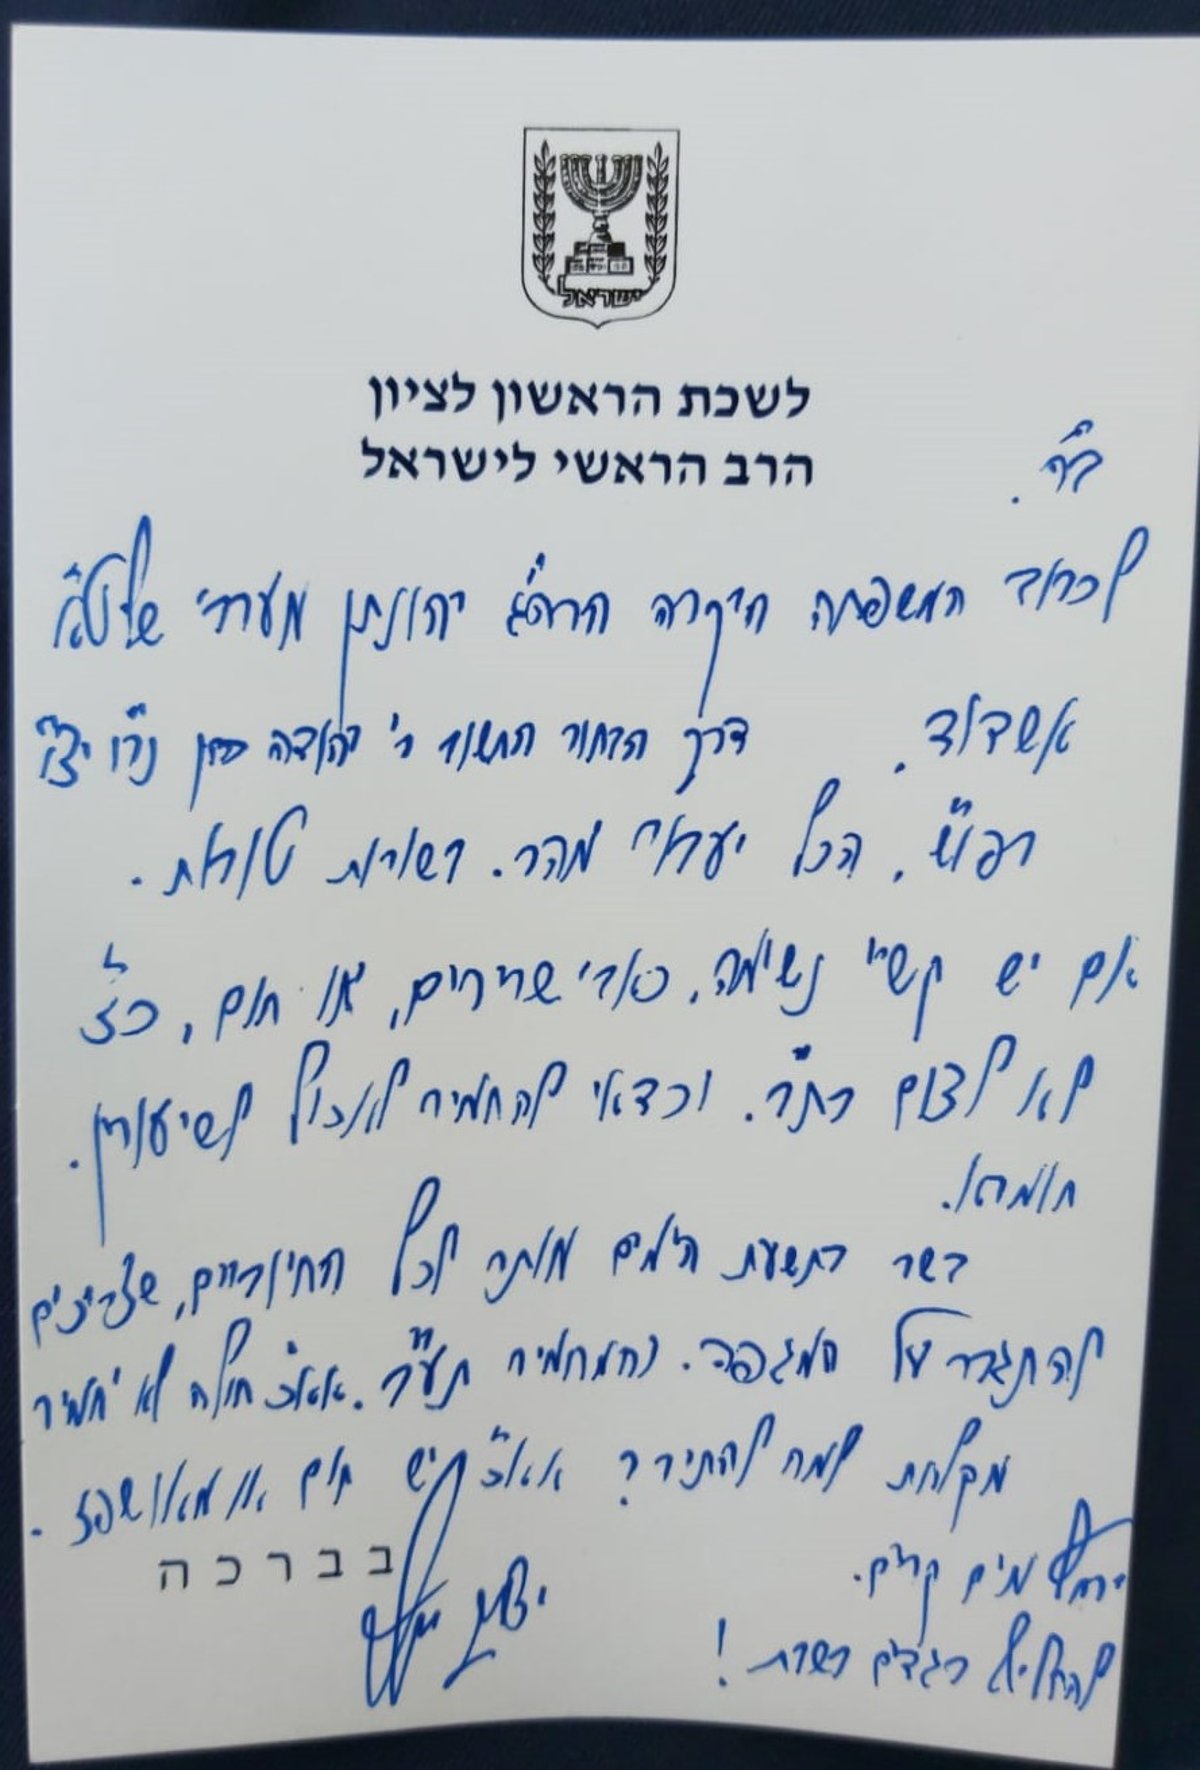 ישראל
לשכת הראשון לציון
הרב הראשי לישראל
ב"ה.
לכבוד המשפחה היקרה הרה"ג יהונתן מערבי שליט"א
אשדוד. דרך הבחור החשוב ר' יהודה כהן נרו יצ"ו
רפו"ש, הכל יעבור מהר. בשורות טובות.
אם יש קשיי נשימה, כאבי שרירים, או חום,
לא לצום בת"ב. וכדאי להחמיר לאכול לשיעורין.
חומרא.
בשר בתשעת הימים מותר לכל החיוביים, שצריכים
להתגבר על המגפה. והמחמיר תע"ב. אא"כ חולה לא יחמיר
מקלחת למה להתיר? אא"כ יש חום או מאושפז.
מים קרים.
להחליף בגדים בשבת!
בברכה
יצחק יוסף